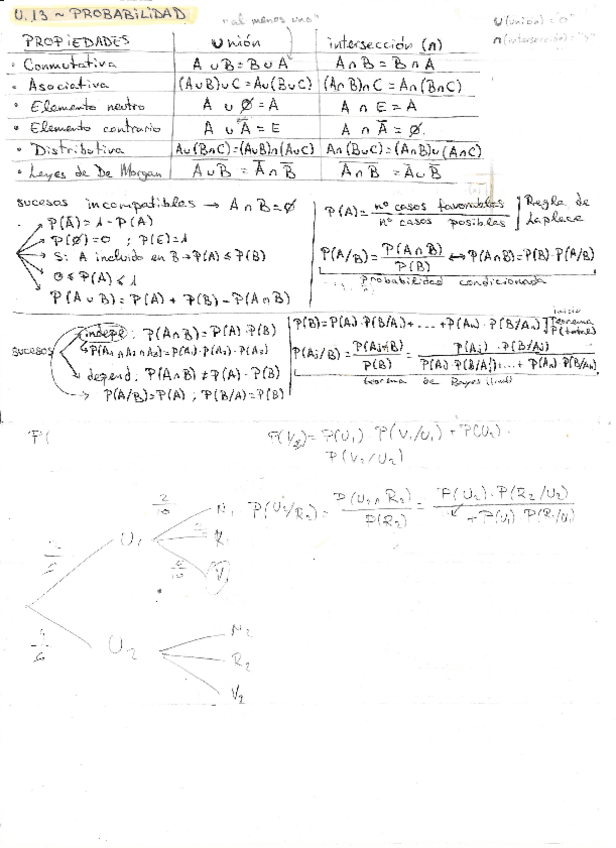 U.13 ~ PROBABILIDAD
"al menos uno"
U (unión) = "o"
∩ (intersección) = "y"
PROPIEDADES unión intersección (∩)
• Conmutativa A ∪ B = B ∪ A A ∩ B = B ∩ A
• Asociativa (A∪B)∪C = A∪(B∪C) (A∩B)∩C = A∩(B∩C)
• Elemento neutro A ∪ Ø = A A ∩ E = A
• Elemento contrario A ∪ Ā = E A ∩ Ā = Ø
• Distributiva A∪(B∩C)=(A∪B)∩(A∪C) A∩(B∪C)=(A∩B)∪(A∩C)
• Leyes de De Morgan A∪B = Ā∩B̄ A∩B = Ā∪B̄
sucesos incompatibles → A∩B=Ø
P(Ā)=1-P(A)
P(Ø)=0 ; P(E)=1
Si A incluido en B → P(A) ≤ P(B)
0 ≤ P(A) ≤ 1
P(A∪B) = P(A) + P(B) - P(A∩B)
P(A) = nº casos favorables / nº casos posibles Regla de Laplace
P(A/B) = P(A∩B) / P(B) ↔ P(A∩B)=P(B)·P(A/B)
Probabilidad condicionada
sucesos
indepe: P(A∩B)=P(A)·P(B)
depend: P(A∩B) ≠ P(A)·P(B)
P(A/B)=P(A) ; P(B/A)=P(B)
inicio
P(B)=P(A₁)·P(B/A₁)+....+P(Aₙ)·P(B/Aₙ) Teorema P(total)
teorema de Bayes (final)
P(
P(V₂)= P(U₁)·P(V₁/U₁) + P(U₂)·
P(V₂/U₂)
P(U₂/R₂) = P(U₂∩R₂) / P(R₂) = P(U₂)·P(R₂/U₂)
+ P(U₁) P(R₁/U₁)
U₁
N₁
R₁
V₁
U₂
N₂
R₂
V₂